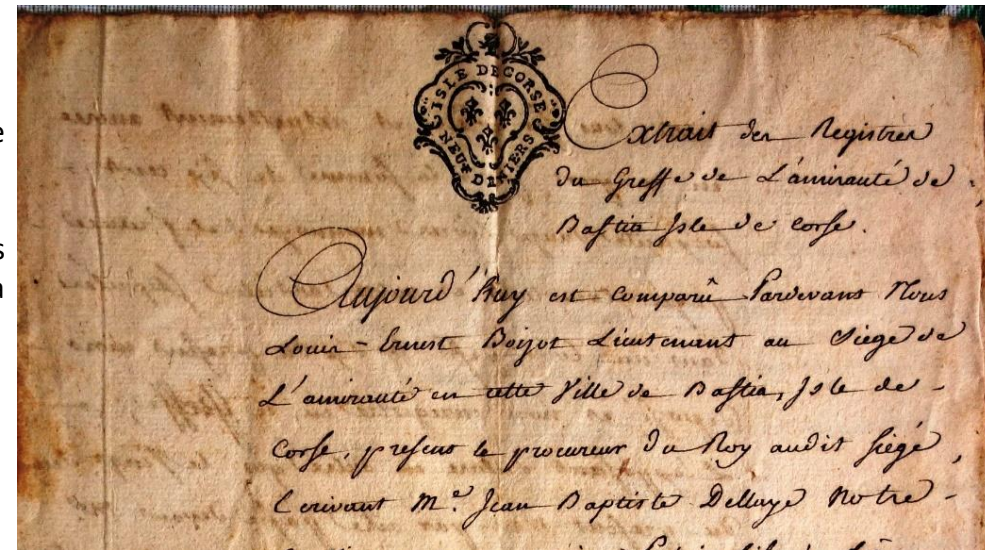 ISLE DE CORSE
NEUF DENIERS
Extrait des Registres
du Greffe de L'amirauté de
Bastia Isle de Corse.
Aujourd'huy est comparû Pardevant Nous
Louis-Ernest Boizot Lieutenant au Siége de
L'amirauté en cette Ville de Bastia, Isle de
Corse, present le procureur du Roy audit siégé,
Ecrivant Me. Jean Baptiste Dellaye Notre